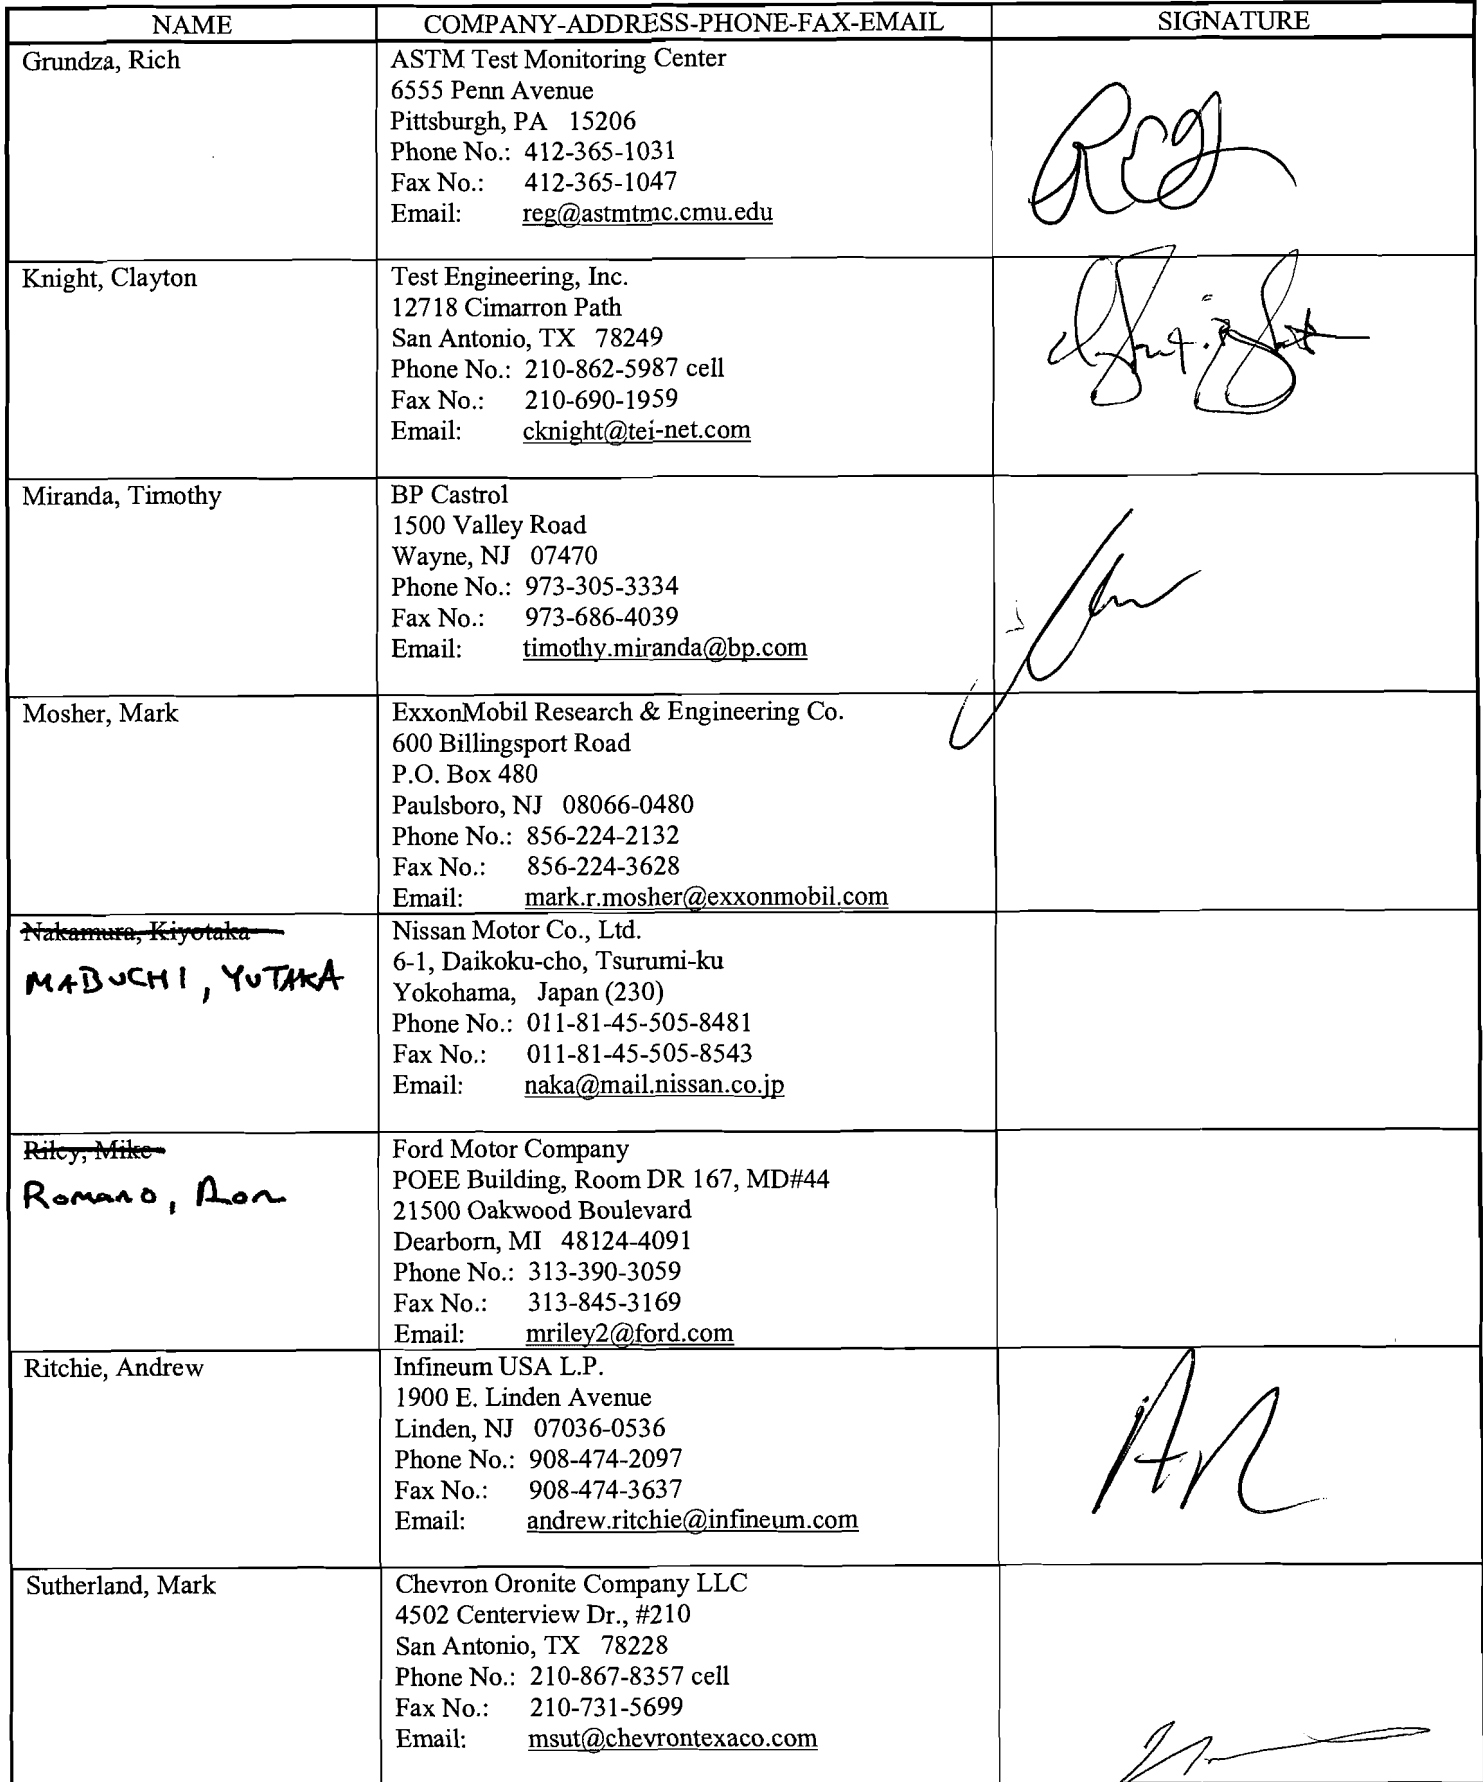 NAME COMPANY-ADDRESS-PHONE-FAX-EMAIL SIGNATURE
Grundza, Rich
ASTM Test Monitoring Center
6555 Penn Avenue
Pittsburgh, PA 15206
Phone No.: 412-365-1031
Fax No.: 412-365-1047
Email: reg@astmtmc.cmu.edu
Knight, Clayton
Test Engineering, Inc.
12718 Cimarron Path
San Antonio, TX 78249
Phone No.: 210-862-5987 cell
Fax No.: 210-690-1959
Email: cknight@tei-net.com
Miranda, Timothy
BP Castrol
1500 Valley Road
Wayne, NJ 07470
Phone No.: 973-305-3334
Fax No.: 973-686-4039
Email: timothy.miranda@bp.com
Mosher, Mark
ExxonMobil Research & Engineering Co.
600 Billingsport Road
P.O. Box 480
Paulsboro, NJ 08066-0480
Phone No.: 856-224-2132
Fax No.: 856-224-3628
Email: mark.r.mosher@exxonmobil.com
Nakamura, Kiyotaka
MABUCHI, YUTAKA
Nissan Motor Co., Ltd.
6-1, Daikoku-cho, Tsurumi-ku
Yokohama, Japan (230)
Phone No.: 011-81-45-505-8481
Fax No.: 011-81-45-505-8543
Email: naka@mail.nissan.co.jp
Riley, Mike
Romano, Ron
Ford Motor Company
POEE Building, Room DR 167, MD#44
21500 Oakwood Boulevard
Dearborn, MI 48124-4091
Phone No.: 313-390-3059
Fax No.: 313-845-3169
Email: mriley2@ford.com
Ritchie, Andrew
Infineum USA L.P.
1900 E. Linden Avenue
Linden, NJ 07036-0536
Phone No.: 908-474-2097
Fax No.: 908-474-3637
Email: andrew.ritchie@infineum.com
Sutherland, Mark
Chevron Oronite Company LLC
4502 Centerview Dr., #210
San Antonio, TX 78228
Phone No.: 210-867-8357 cell
Fax No.: 210-731-5699
Email: msut@chevrontexaco.com